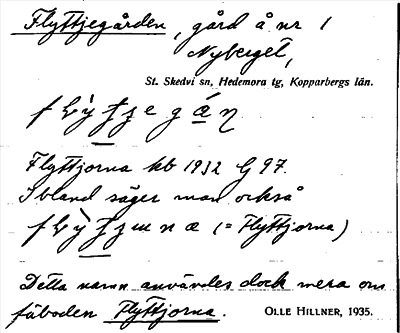 Flyttjegården, gård å nr 1
Nyberget,
St. Skedvi sn, Hedemora tg, Kopparbergs län.
Flyttjorna kb 1932 G 97.
Ibland säger man också
(= Flyttjorna)
Detta namn användes dock mera om
fäboden Flyttjorna.
OLLE HILLNER, 1935.